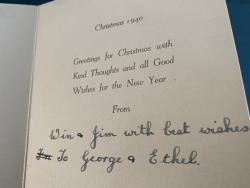 Christmas 1940
Greetings for Christmas with
Kind Thoughts and all Good
Wishes for the New Year.
From
Win & Jim with best wishes
To George & Ethel.